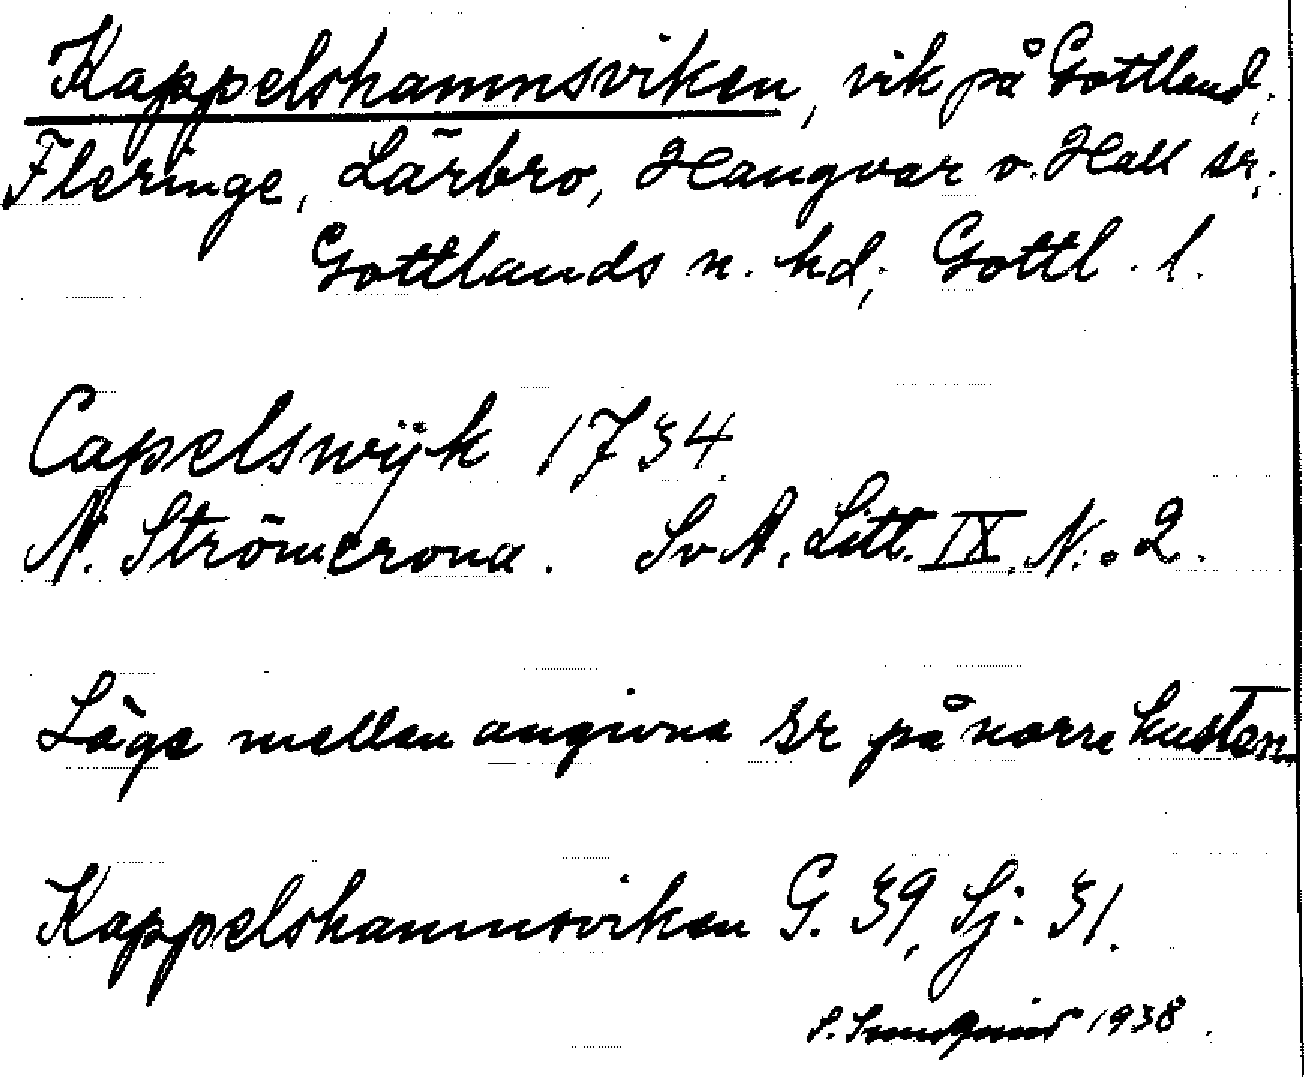 Kappelshamnsviken, vik på Gottland,
Fleringe, Lärbro, Hangvar o. Hall sr,
Gottlands n. hd, Gottl. l.
Capelswijk 1734.
N. Strömcrona. SvA. Litt. IX. N:o 2.
Läge mellan angivna sr på norra kusten.
Kappelshamnsviken G. 39, Sj. 31.
S. 1938.